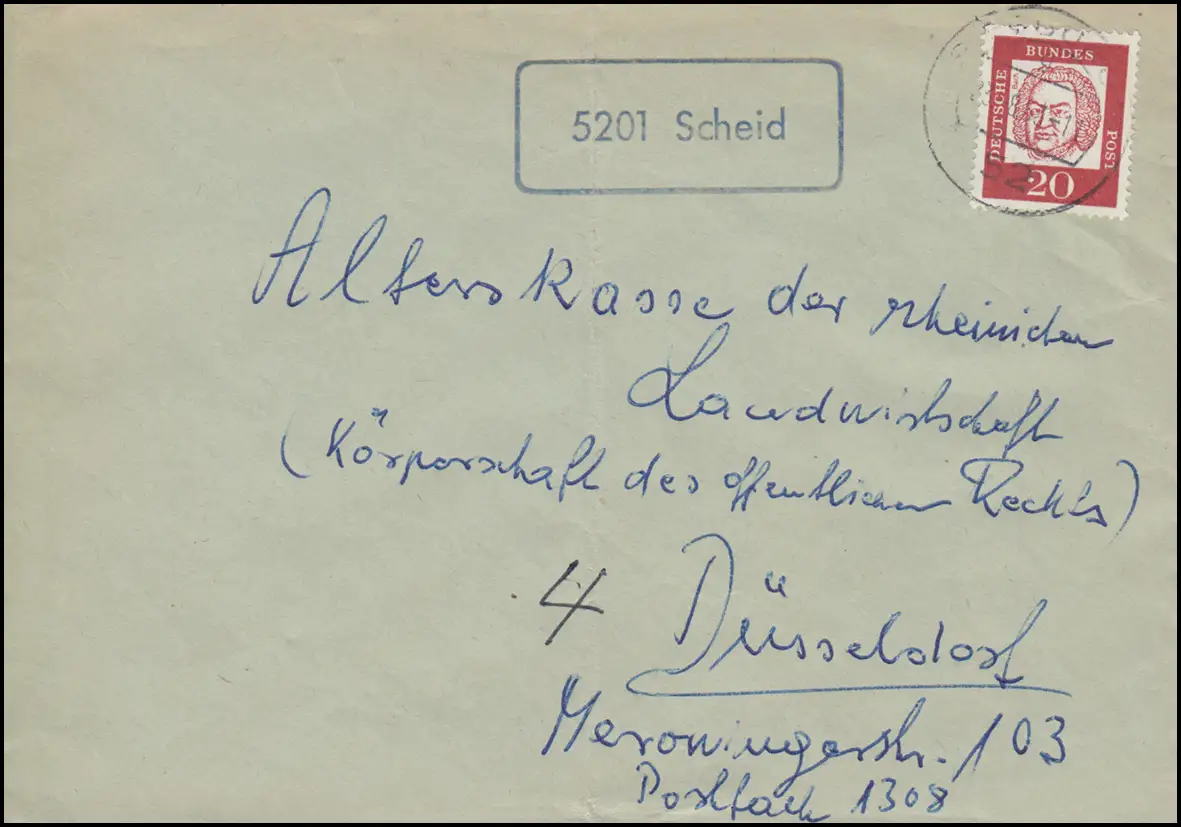 5201 Scheid
DEUTSCHE BUNDES POST
Bach
20
52
Alterskasse der rheinichen
Landwirtschaft
(Körperschaft des öffentlichen Rechts)
4 Düsseldorf
Merowingerstr. 103
Postfach 1308